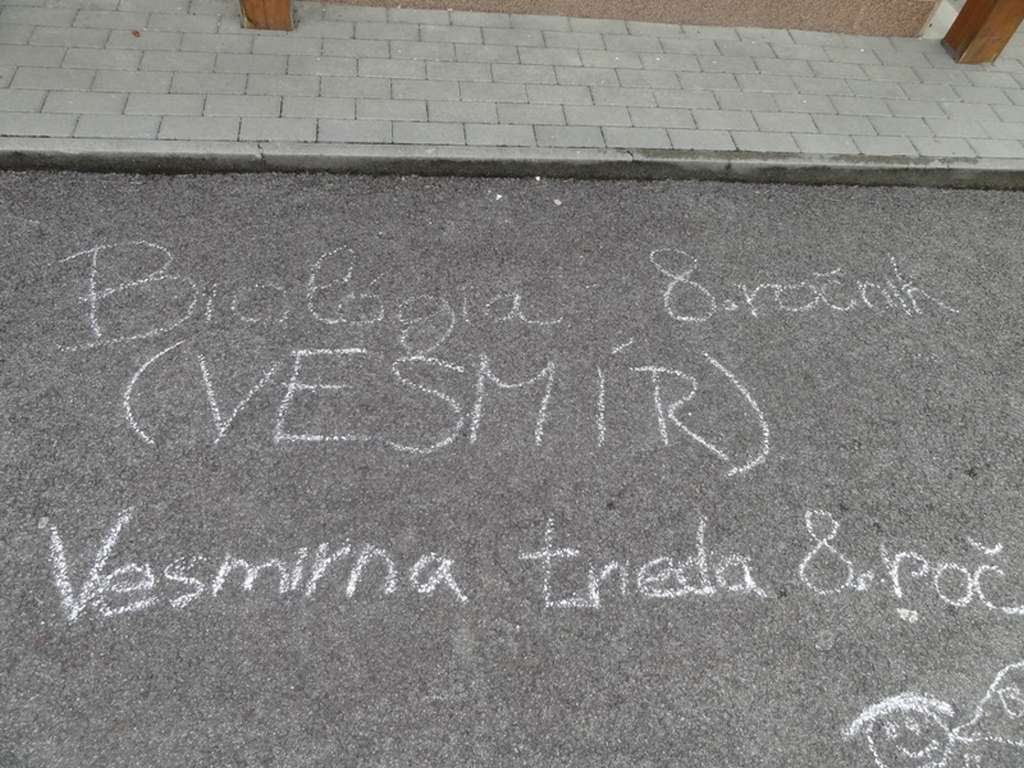 Biológia 8.ročník
(VESMÍR)
Vesmirna trieda 8.roč